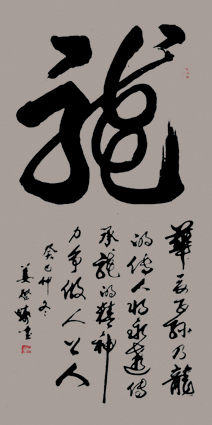 龍
華夏民族乃龍
的傳人將永遠傳
承龍的精神
力争做人上人
癸巳仲冬
姜書